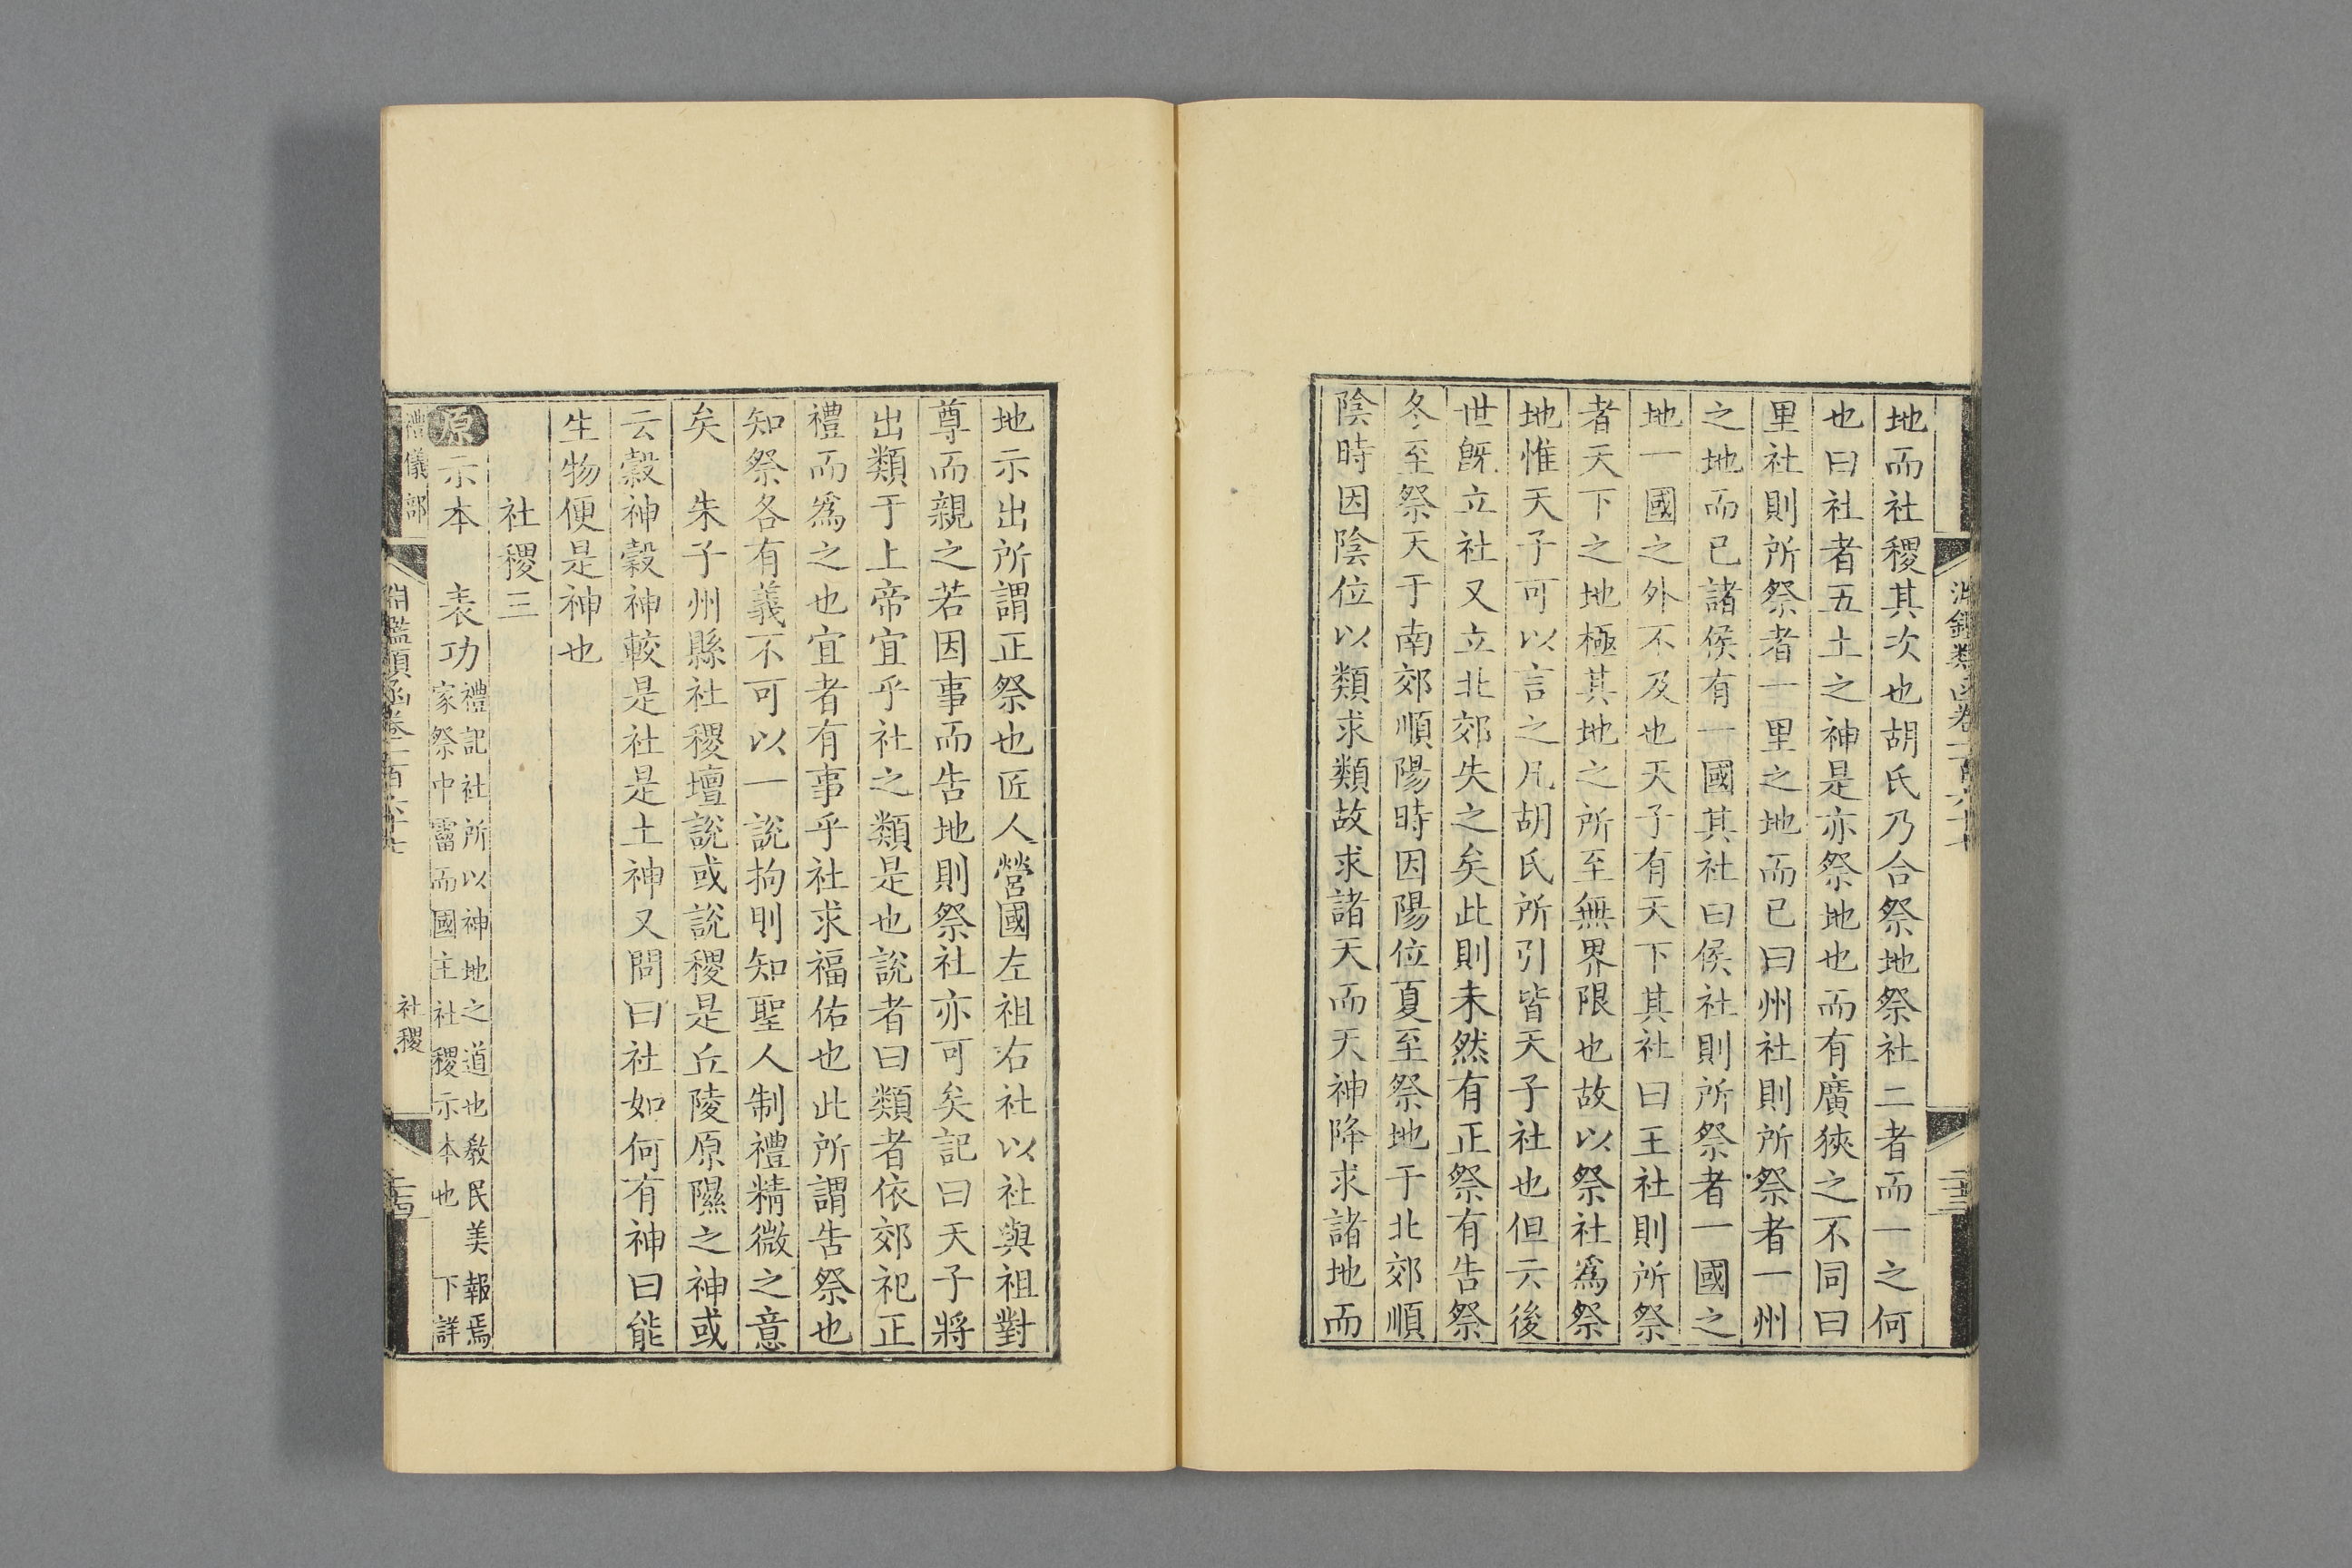 地而社稷其次也胡氏乃合祭地祭社二者而一之何
也曰社者五土之神是亦祭地也而有廣狹之不同曰
里社則所祭者一里之地而已曰州社則所祭者一州
之地而已諸侯有一國其社曰侯社則所祭者一國之
地一國之外不及也天子有天下其社曰王社則所祭
者天下之地極其地之所至無界限也故以祭社爲祭
地惟天子可以言之凡胡氏所引皆天子社也但云後
世旣立社又立北郊失之矣此則未然有正祭有告祭
冬至祭天于南郊順陽時因陽位夏至祭地于北郊順
陰時因陰位以類求類故求諸天而天神降求諸地而
地示出所謂正祭也匠人營國左祖右社以社與祖對
尊而親之若因事而告地則祭社亦可矣記曰天子將
出類于上帝宜乎社之類是也說者曰類者依郊祀正
禮而爲之也宜者有事乎社求福佑也此所謂告祭也
知祭各有義不可以一說拘則知聖人制禮精微之意
矣　朱子州縣社稷壇說或說稷是丘陵原隰之神或
云穀神穀神較是社是土神又問曰社如何有神曰能
生物便是神也
社稷三
原示本　表功禮記社所以神地之道也教民美報焉
家祭中霤而國主社稷示本也　下詳
禮儀部
淵鑑類函卷一百六十七
社稷